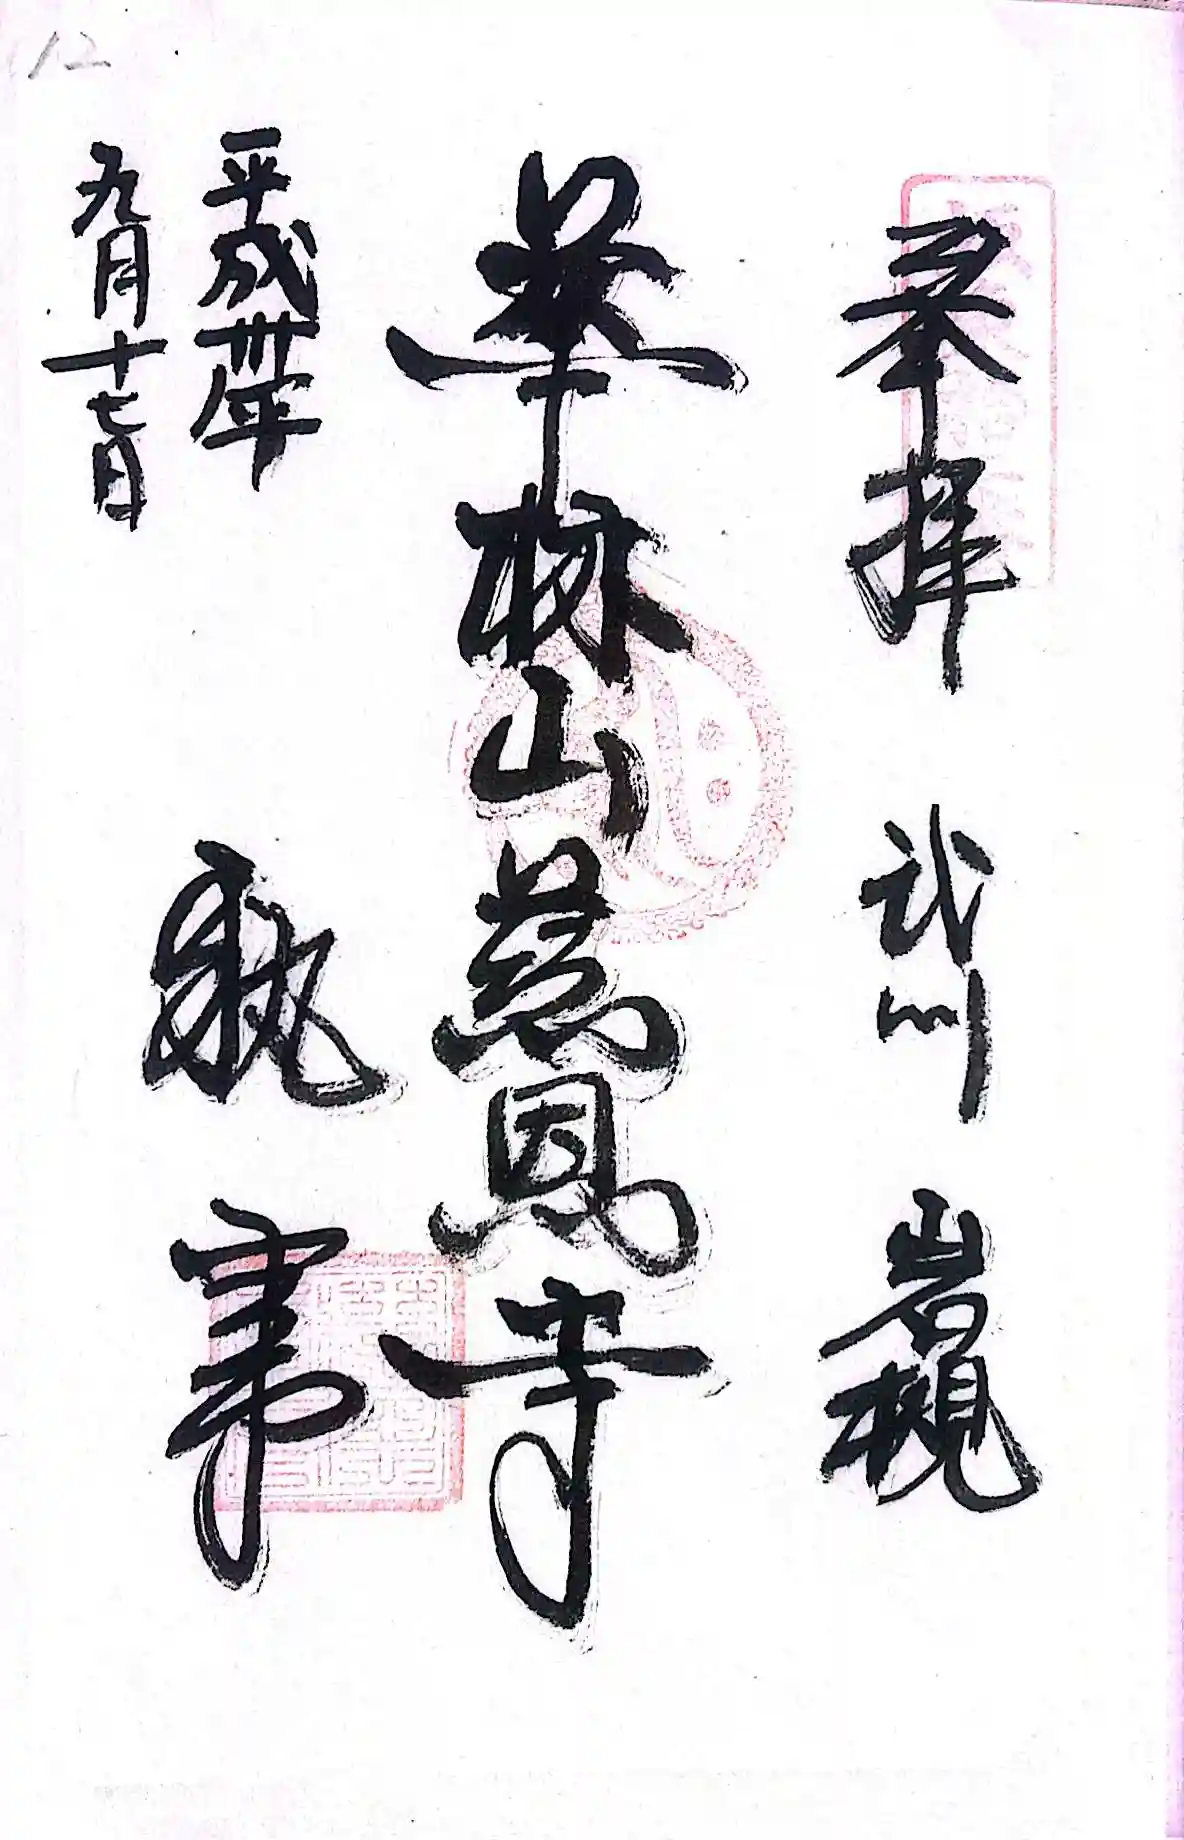 12
奉拝 武州 岩槻
華林山慈恩寺
平成卅年
九月十七日
執事